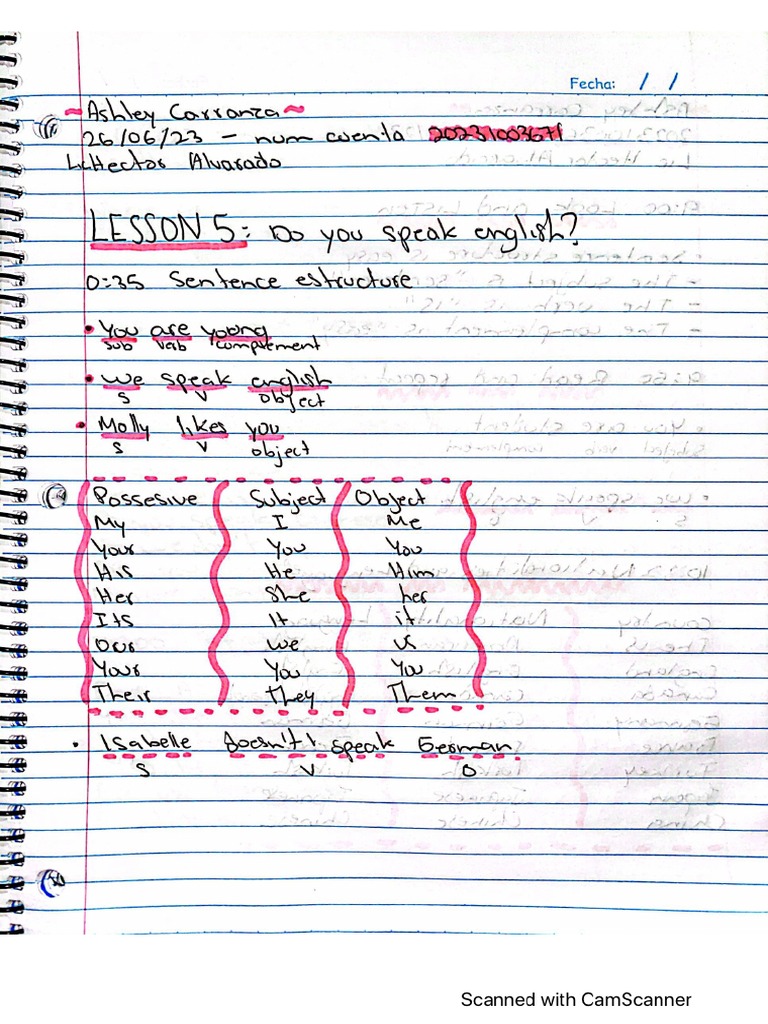 Fecha: / /
~Ashley Carranza~
26/06/23 - num cuenta 20231003671
Lic Hector Alvarado
LESSON 5: Do you speak english?
0:35 Sentence estructure
• You are young
sub verb complement
• we speak english
s v object
• Molly likes you
s v object
Possesive Subject Object
My I Me
Your You You
His He Him
Her She her
Its It it
Our we us
Your You You
Their They Them
• Isabelle doesn't speak German
S V O
Scanned with CamScanner